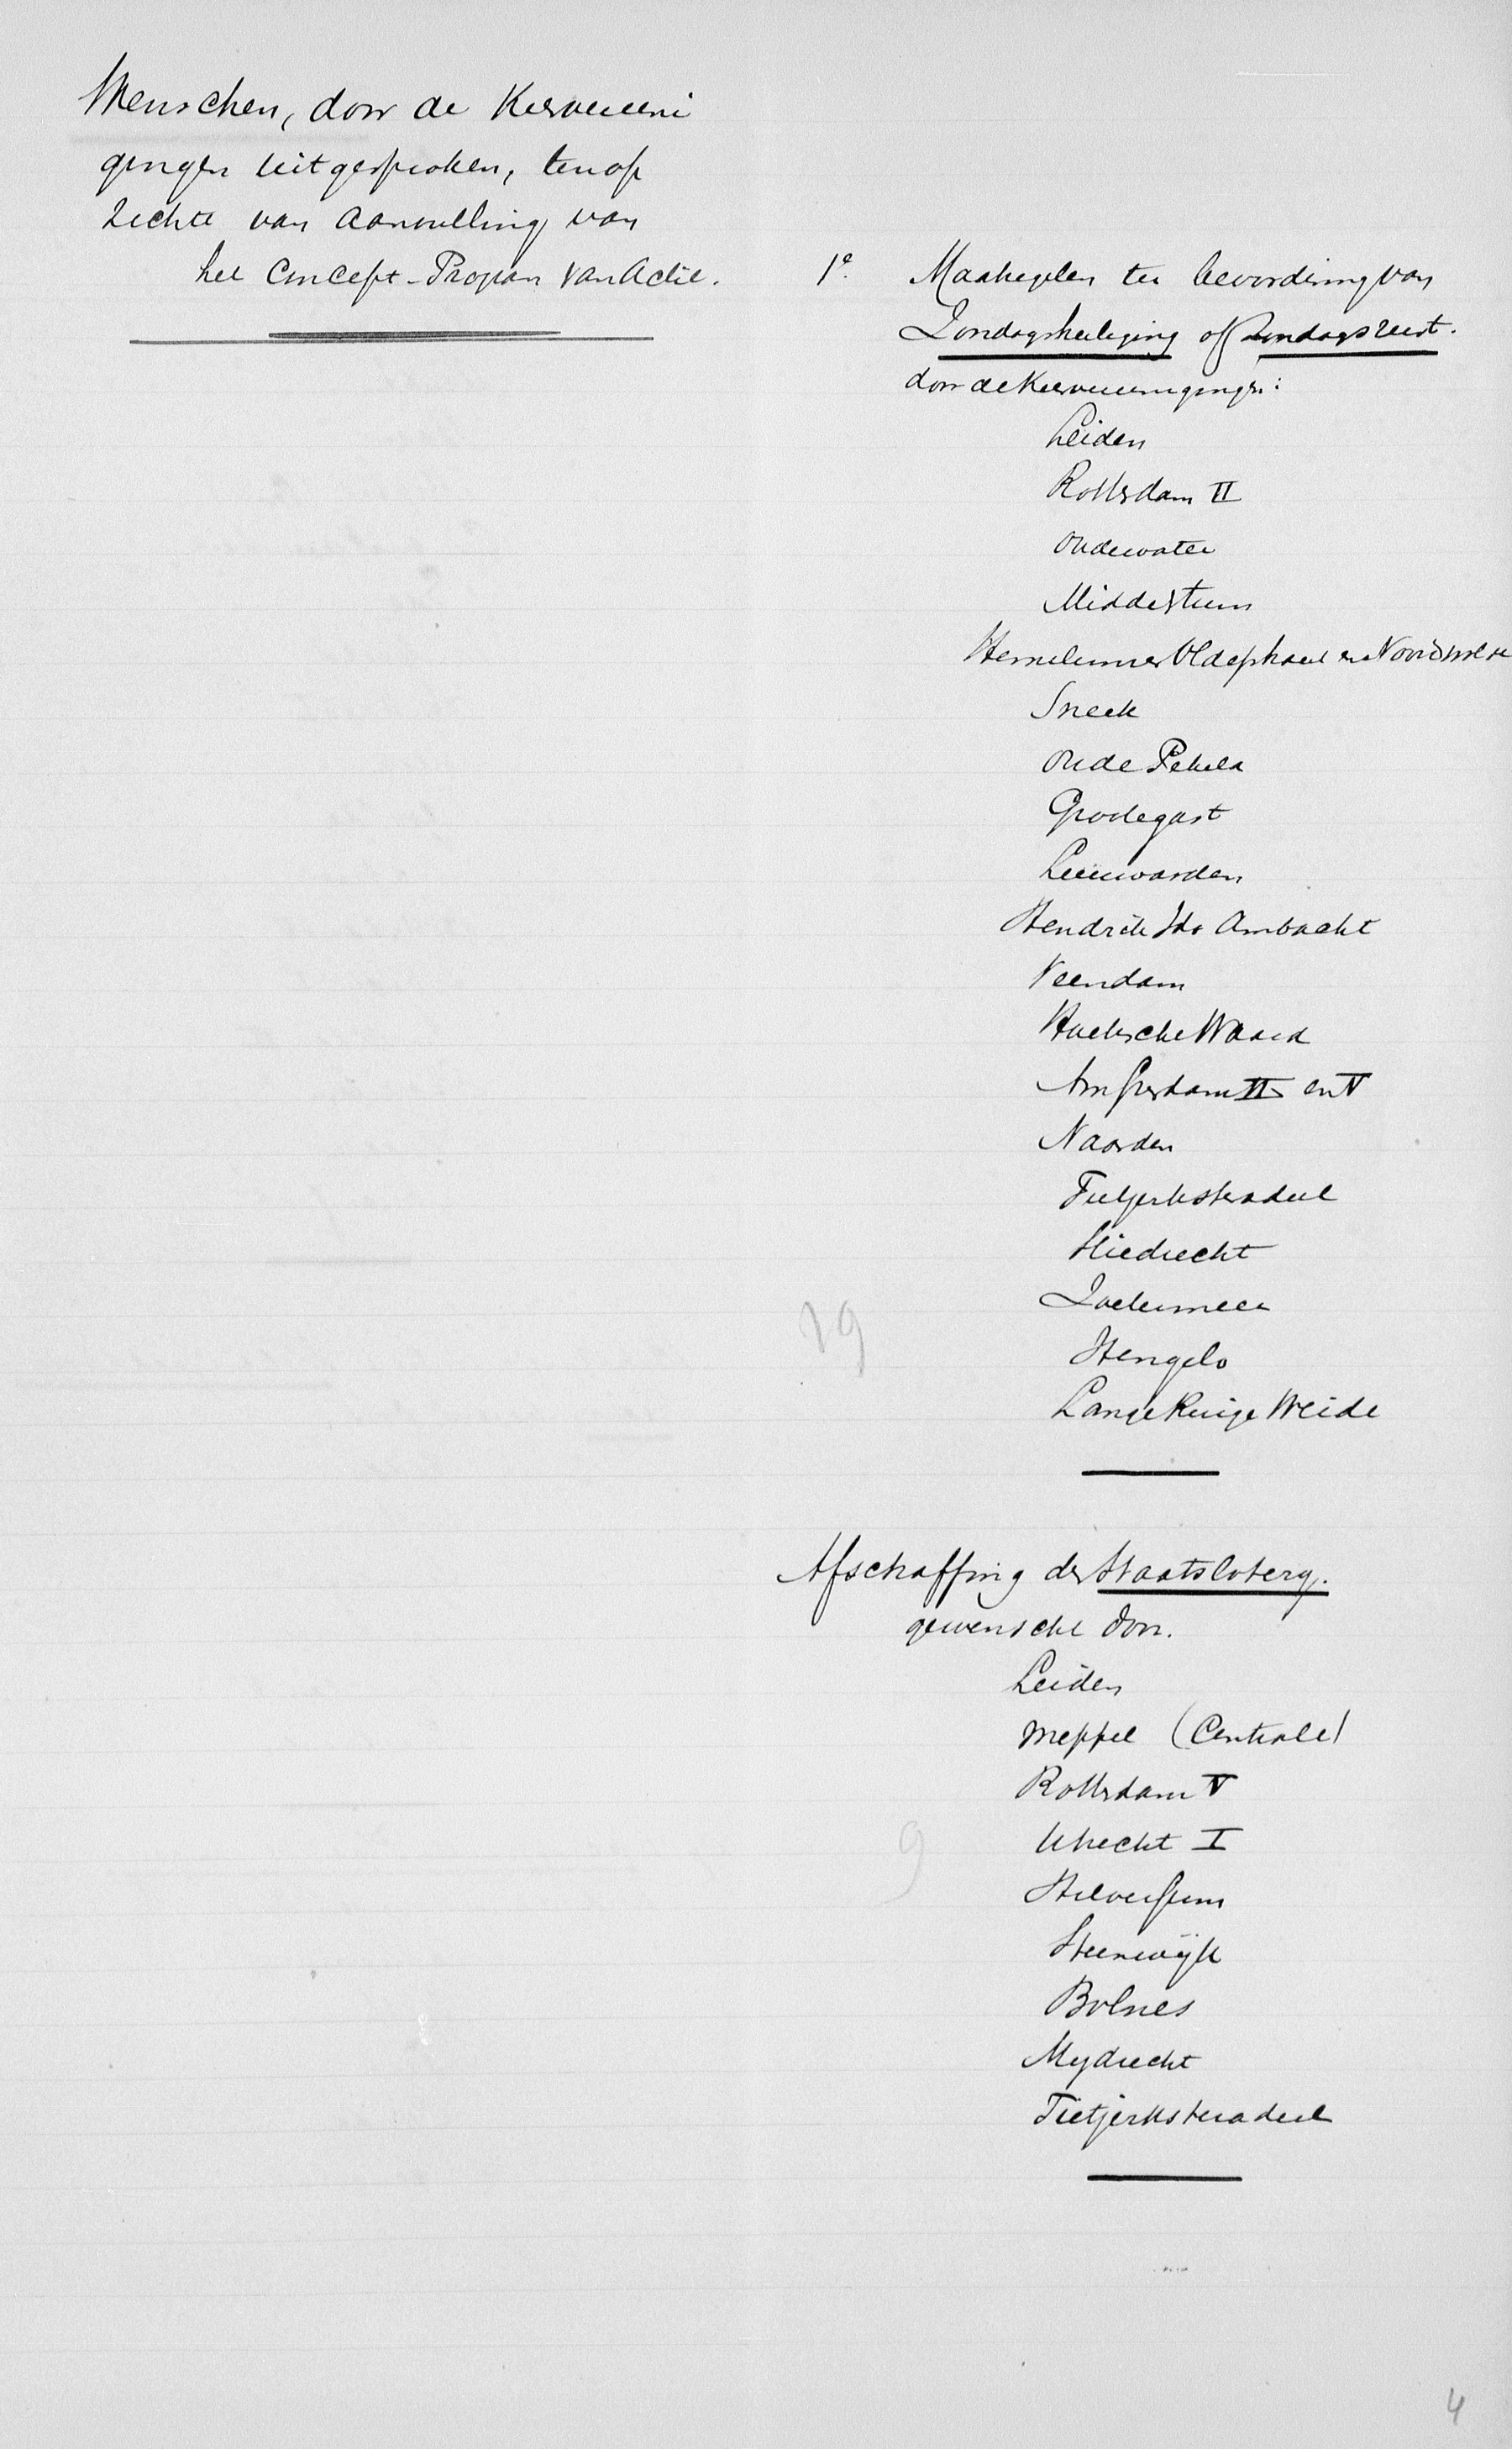 Wenschen, door de Kiesvereeni
gingen uitgesproken, ten op
zichte van aanvulling van
het Concept-Program van Actie.
1e. Maatregelen ter bevordering van
Zondagsheiliging of Zondagsrust.
door de Kiesvereenigingen:
Leiden
Rotterdam II
Oudewater
Middelstum
Hemelumer Oldephaert en Noordwolde
Sneek
Oude Pekela
Grootegast
Leeuwarden
Hendrik Ido Ambacht
Veendam
Hoeksche Waard
Amsterdam II en V
Naarden
Tietjerksteradeel
Sliedrecht
Zoetermeer
Hengelo
Lange Ruige Weide
19
Afschaffing der Staatsloterij.
gewenscht door.
Leiden
Meppel (Centrale)
Rotterdam V
Utrecht I
9
Hilversum
Steenwijk
Bolnes
Mydrecht
Tietjerksteradeel
4